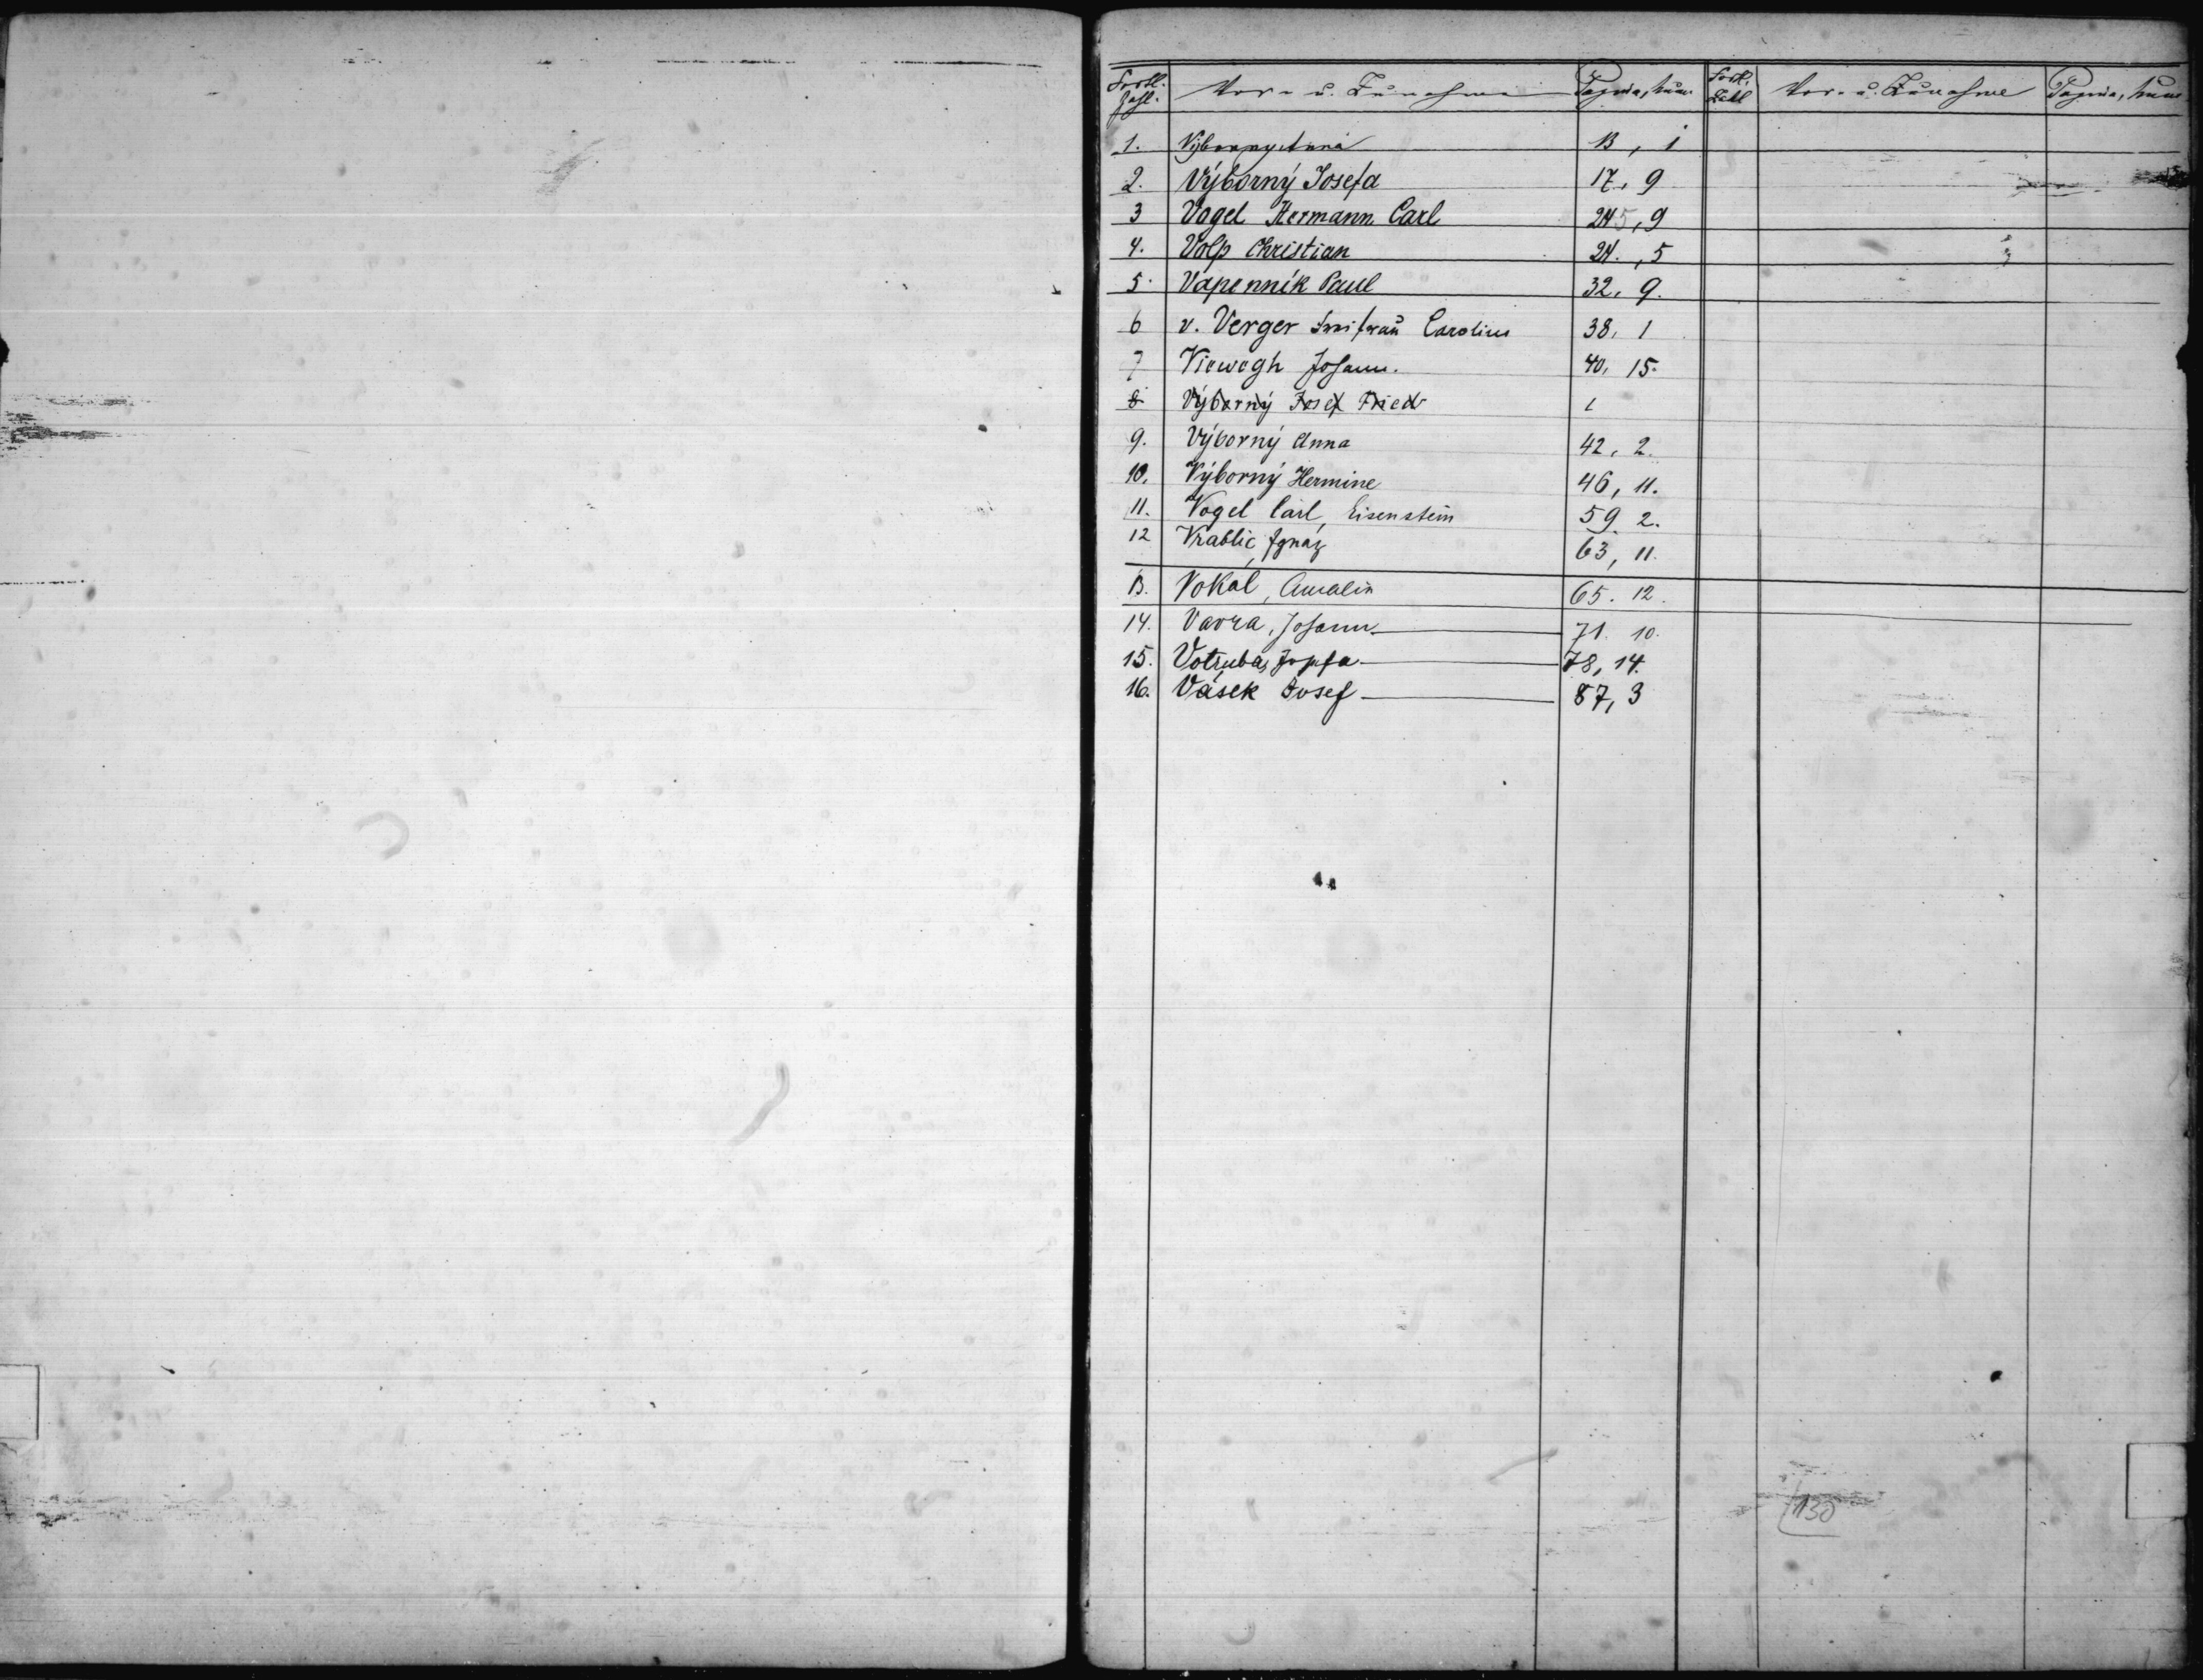 Fortl. Zahl. Vor- u. Zunahme Pagina, Num. Fortl. Zahl Vor- u. Zunahme Pagina, Num.
1. Výborny Anna 13, 1
2. Výborný Josefa 17, 9
3 Vogel Hermann Carl 245, 9
4. Volp Christian 24., 5
5. Vapennik Paul 32, 9.
6 v. Verger Freifrau Carolina 38, 1
7 Viewegh Johann. 40, 15.
8 Výborný Josef Fried 1
9. Výborný Anna 42, 2.
10. Výborný Hermine 46, 11.
11. Vogel Carl, Eisenstein 59. 2.
12 Vrablic, Ignaz 63, 11.
13. Vokal, Amalia 65. 12.
14. Vavra, Johann 71. 10.
15. Votruba, Josefa 78, 14.
16. Vásek Josef 87, 3
130